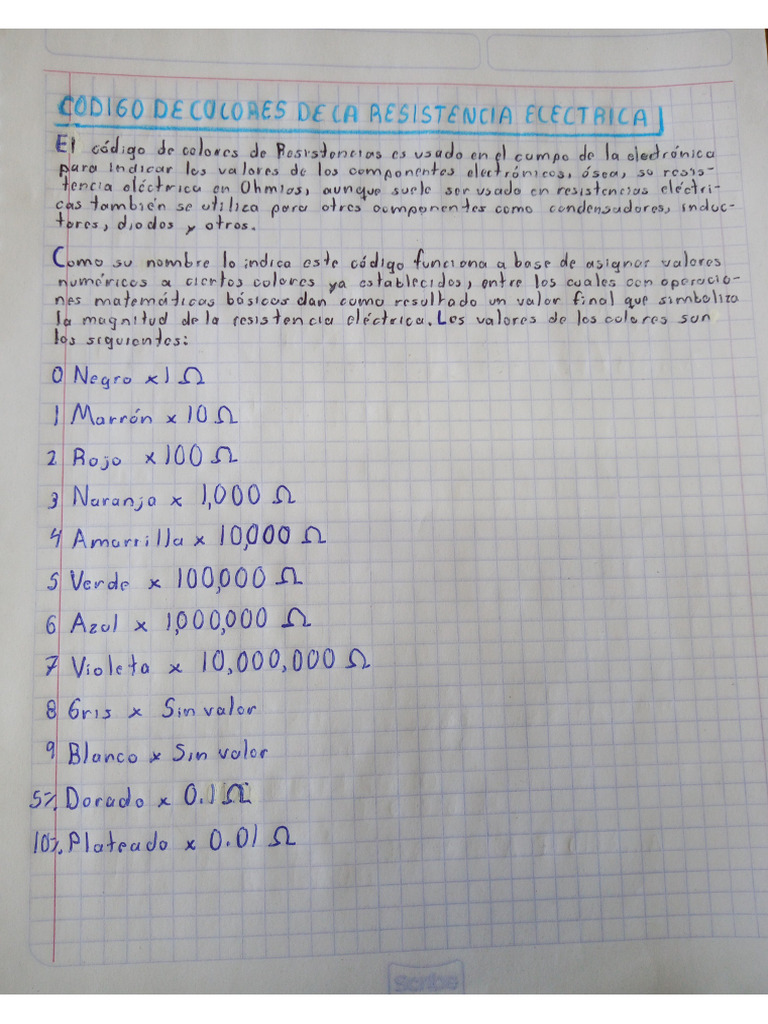 CODIGO DE COLORES DE LA RESISTENCIA ELECTRICA
El código de colores de Resistencias es usado en el campo de la electrónica
para indicar los valores de los componentes electrónicos, ósea, su resis-
tencia eléctrica en Ohmios, aunque suele ser usado en resistencias eléctri-
cas también se utiliza para otros componentes como condensadores, induc-
tores, diodos y otros.
Como su nombre lo indica este código funciona a base de asignar valores
numéricos a ciertos colores ya establecidos, entre los cuales con operacio-
nes matemáticas básicas dan como resultado un valor final que simboliza
la magnitud de la resistencia eléctrica. Los valores de los colores son
los siguientes:
0 Negro x 1 Ω
1 Marrón x 10 Ω
2 Rojo x 100 Ω
3 Naranja x 1,000 Ω
4 Amarrilla x 10,000 Ω
5 Verde x 100,000 Ω
6 Azul x 1,000,000 Ω
7 Violeta x 10,000,000 Ω
8 Gris x Sin valor
9 Blanco x Sin valor
5%. Dorado x 0.1 Ω
10%. Plateado x 0.01 Ω
Scribe